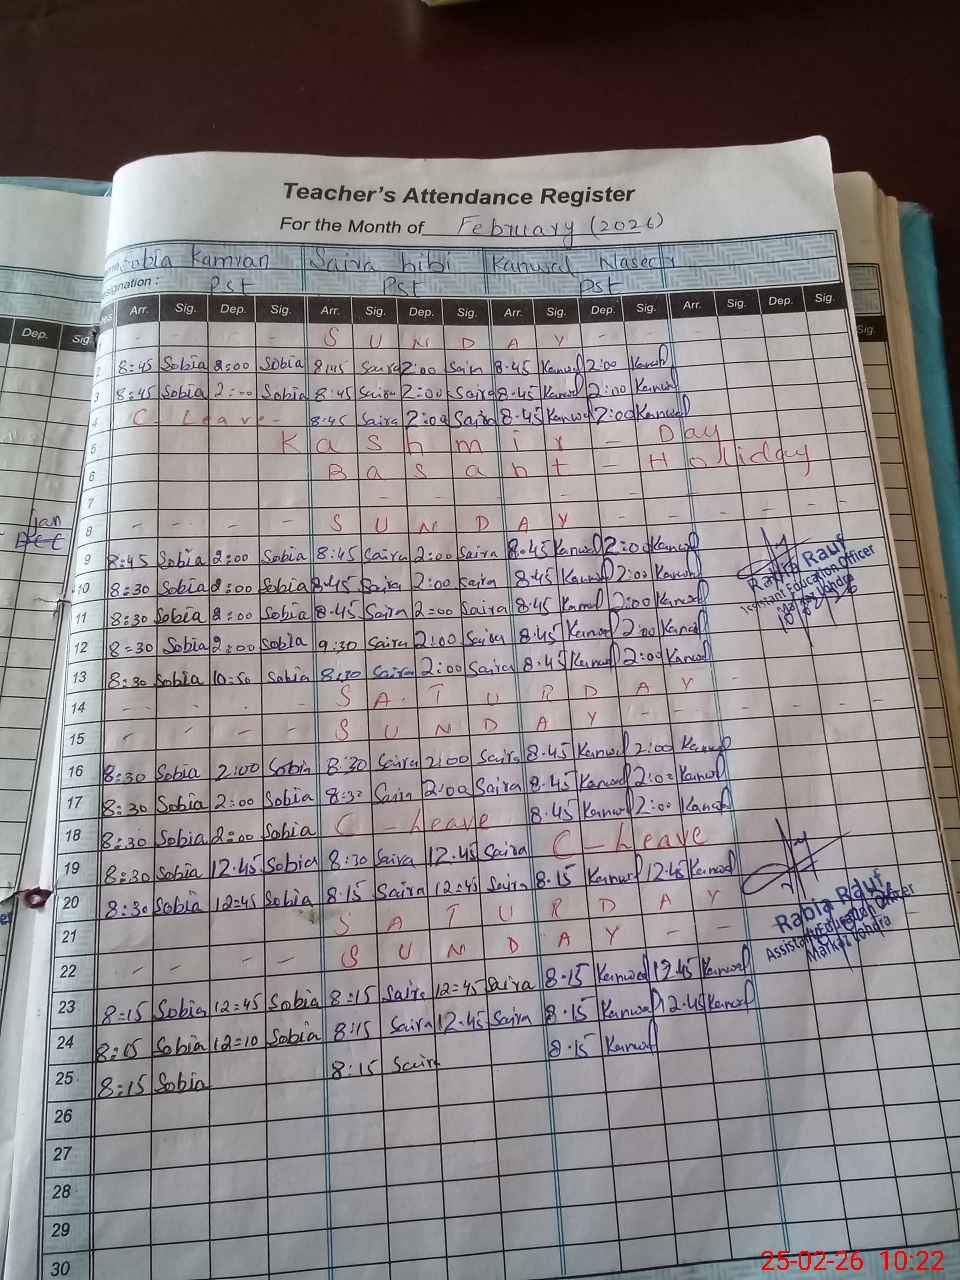 Teacher's Attendance Register
For the Month of February (2026)
Sobia Kamran Saira bibi Kanwal Naseer
Designation : Pst Pst Pst
Dep. Sig. Arr. Sig. Dep. Sig. Arr. Sig. Dep. Sig. Arr. Sig. Dep. Sig. Arr. Sig. Dep. Sig.
S U N D A Y
2 8:45 Sobia 2:00 Sobia 8:45 Saira 2:00 Saira 8.45 Kanwal 2:00 Kanwal
3 8:45 Sobia 2:00 Sobia 8:45 Saira 2:00 Saira 8.45 Kanwal 2:00 Kanwal
4 C Leave - 8:45 Saira 2:00 Saira 8.45 Kanwal 2:00 Kanwal
5 Kashmir - Day
6 Basant - Holliday
7
8 S U N D A Y
Jan
9 8:45 Sobia 2:00 Sobia 8:45 Saira 2:00 Saira 8.45 Kanwal 2:00 Kanwal
10 8:30 Sobia 2:00 Sobia 8:45 Saira 2:00 Saira 8.45 Kanwal 2:00 Kanwal
11 8:30 Sobia 2:00 Sobia 8:45 Saira 2:00 Saira 8.45 Kanwal 2:00 Kanwal
12 8:30 Sobia 2:00 Sobia 9:30 Saira 2:00 Saira 8.45 Kanwal 2:00 Kanwal
13 8:30 Sobia 10:50 Sobia 8:30 Saira 2:00 Saira 8.45 Kanwal 2:00 Kanwal
Rabia Rauf
Assistant Education Officer
14 S A T U R D A Y
15 S U N D A Y
16 8:30 Sobia 2:00 Sobia 8:30 Saira 2:00 Saira 8.45 Kanwal 2:00 Kanwal
17 8:30 Sobia 2:00 Sobia 8:30 Saira 2:00 Saira 8.45 Kanwal 2:00 Kanwal
18 8:30 Sobia 2:00 Sobia C - Leave 8.45 Kanwal 2:00 Kanwal
19 8:30 Sobia 12:45 Sobia 8:30 Saira 12:45 Saira C - Leave
20 8:30 Sobia 12:45 Sobia 8:15 Saira 12:45 Saira 8.15 Kanwal 12.45 Kanwal
21 S A T U R D A Y
22 S U N D A Y
Rabia Rauf
Assistant Education Officer
23 8:15 Sobia 12:45 Sobia 8:15 Saira 12:45 Saira 8.15 Kanwal 12.45 Kanwal
24 8:15 Sobia 12:10 Sobia 8:15 Saira 12.45 Saira 8.15 Kanwal 12.45 Kanwal
25 8:15 Sobia 8:15 Saira 8.15 Kanwal
26
27
28
29
30
25-02-26 10:22